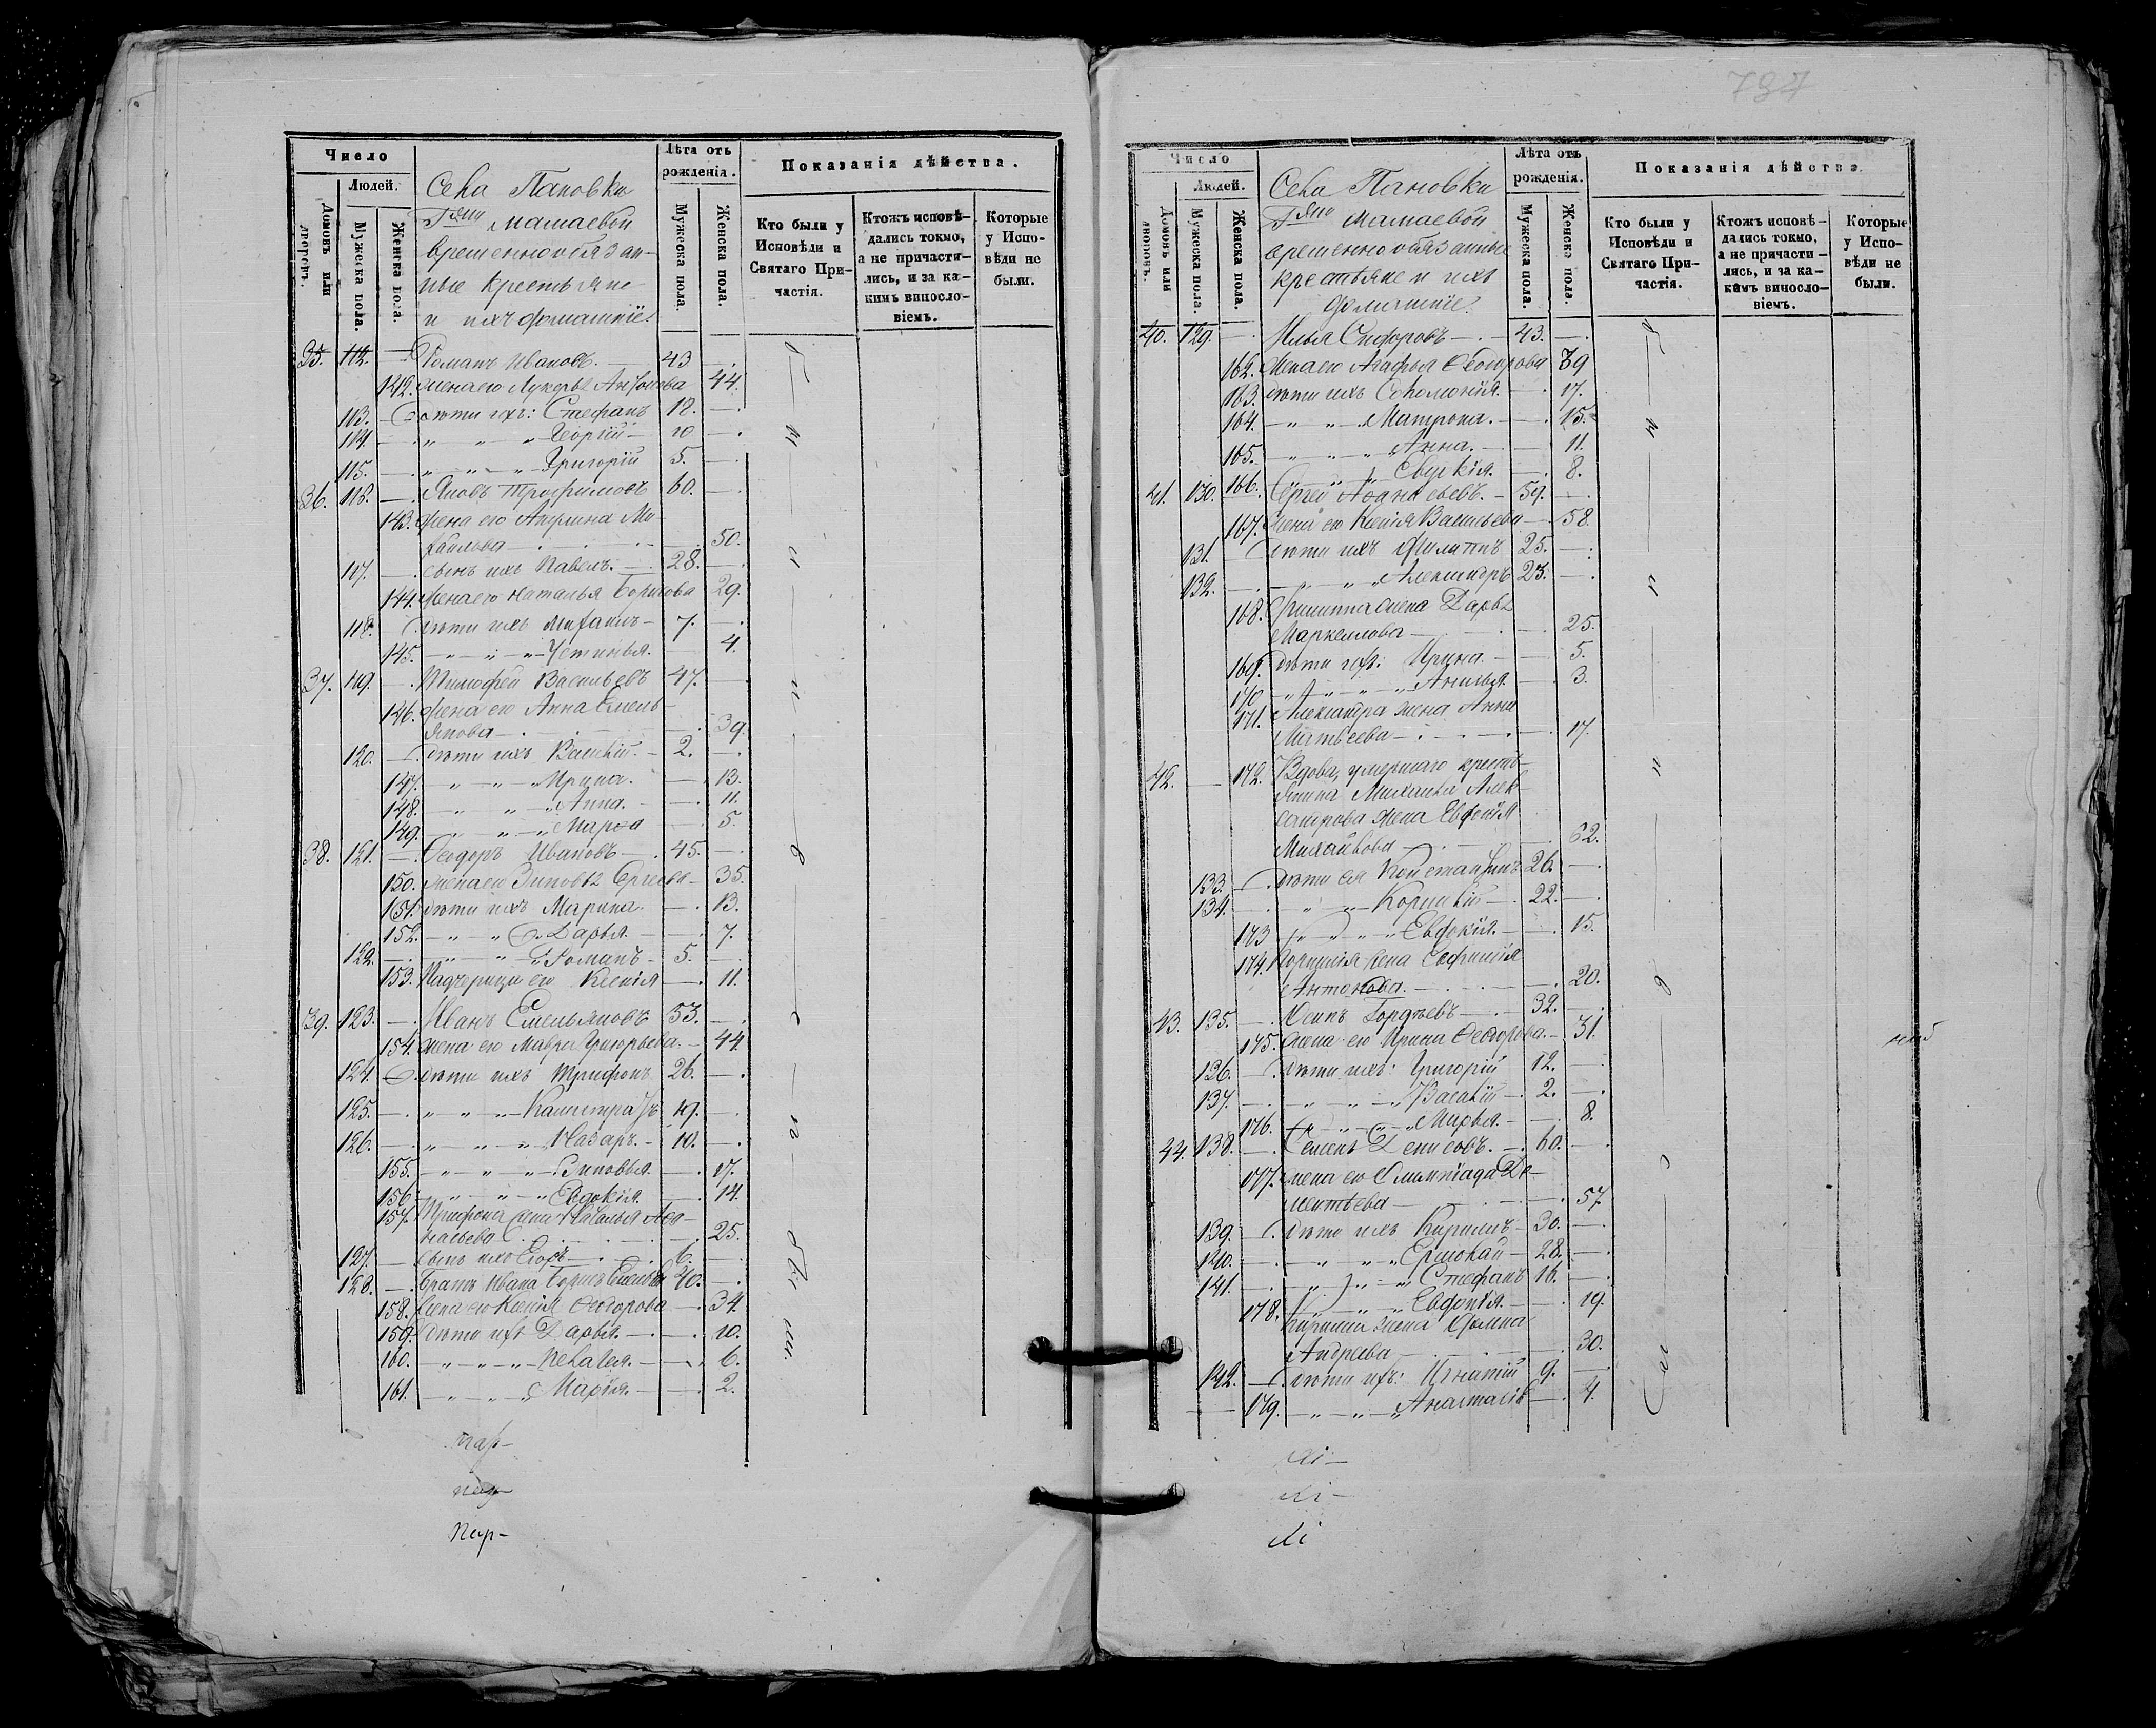 Число
Людей.
Домовъ или дворовъ.
Мужеска пола.
Женска пола.
Села Пановки
Г-жи Мамаевой
временнообязан-
ные крестьяне
и ихъ домашніе.
Лѣта отъ рожденія.
Мужеска пола.
Женска пола.
Показанія дѣйства.
Кто были у Исповѣди и Святаго Причастія.
Ктожъ исповѣдались токмо, а не причастились, и за какимъ винословіемъ.
Которые у Исповѣди не были.
35. 112. — Романъ Ивановъ. 43 —
142. жена его Лукерья Антонова 44.
113. дѣти ихъ: Стефанъ 12. —
114. — " " " Георгій — 10 —
115. — " " " Григорій 5. —
36. 116. — Яковъ Трофимовъ 60. —
143. жена его Акулина Ми-
хайлова — 50.
117. — сынъ ихъ Павелъ. — 28. —
144. жена его Наталья Борисова 29.
118. дѣти ихъ Михаилъ — 7. —
145. — " " " Устинья. 4.
37. 119. — Тимофей Васильевъ 47. —
146. жена его Анна Емель-
янова — 39.
120. — дѣти ихъ Василій. — 2. —
147. " " " Ирина. — 13.
148. — " " " Анна. — 11.
149. — " " " Марѳа — 5.
38. 121. — Ѳеодоръ Ивановъ — 45. —
150. жена его Зиновья Сергеева — 35.
151. дѣти ихъ Марина. — 13.
152. — " " Дарья. — 7.
122. — " " " Романъ — 5. —
153. Падчерица его Ксенія — 11.
39. 123. — Иванъ Емельяновъ 53. —
154. жена его Мавра Григорьева. — 44
124. дѣти ихъ Трифонъ 26. —
125. — " " " Калистратъ 19. —
126. — " " " Назаръ. — 10. —
155. — " " " Зиновья. — 17.
156 — " " " Евдокія. — 14.
157. Трифона жена Наталья Аѳа-
насьева — 25.
127. — сынъ ихъ Егоръ — 6. —
128. — Братъ Ивана Борисъ Емельян 40. —
158. жена его Ксенія Ѳеодорова — 34.
159. дѣти ихъ Дарья. — 10.
160. — " " " Пелагея. — 6.
161. — " " " Марія. — 2.
пар-
пар-
пар-
787
Число
Людей.
Домовъ или дворовъ.
Мужеска пола.
Женска пола.
Села Пановки
Г-жи Мамаевой
временнообязанные
крестьяне и ихъ
домашніе.
Лѣта отъ рожденія.
Мужеска пола.
Женска пола.
Показанія дѣйства
Кто были у Исповѣди и Святаго Причастія.
Ктожъ исповѣдались токмо, а не причастились, и за какимъ винословіемъ.
Которые у Исповѣди не были.
40. 129. — Илья Сидоровъ — 43. —
162. Жена его Агафья Ѳеодорова 39
163. дѣти ихъ Соломонія. — 17.
164. — " " Матрона. — 15.
165. — " " " Анна. — 11.
166. — " " — 8.
41. 130. Сергей Аѳанасьевъ. — 59. —
167. Жена его Ксенія Васильева — 58.
131. дѣти ихъ Филиппъ 25. —
132. — " " Александръ 23. —
168. Филиппа жена Дарья
Маркеллова — 25.
169. дѣти ихъ: Ирина. — 5.
170 — " " " " — 3.
171. Александра жена Анна
Матвеева — 17.
42. — 172. Вдова, умершаго кресть-
янина Михаила Алек-
сандрова жена Евфимія
Михайлова — 62.
133. дѣти ея Константинъ 26. —
134. — " " Корнилій — 22. —
173 — " " " Евдокія. — 15.
174. Корнилія жена Евфимія
Антонова. — 20.
43. 135. — Осипъ Гордѣевъ — 32. —
175. жена его Ирина Ѳеодорова. — 31.
136. — дѣти ихъ: Григорій 12. —
137. — " " " Василій — 2. —
176. — " " " Марья. — 8.
44. 138. — Семенъ Денисовъ. — 60. —
177. жена его Олимпіада Де-
ментьева — 57
139. дѣти ихъ Кириллъ — 30. —
140. — " " " Ермолай — 28. —
141. — " " " Стефанъ 16. —
178. — " " " — 19.
Кирилла жена Домна
Андреева — 30.
142. — дѣти ихъ: Игнатій 9. —
179. — " " " Анастасія — 4.